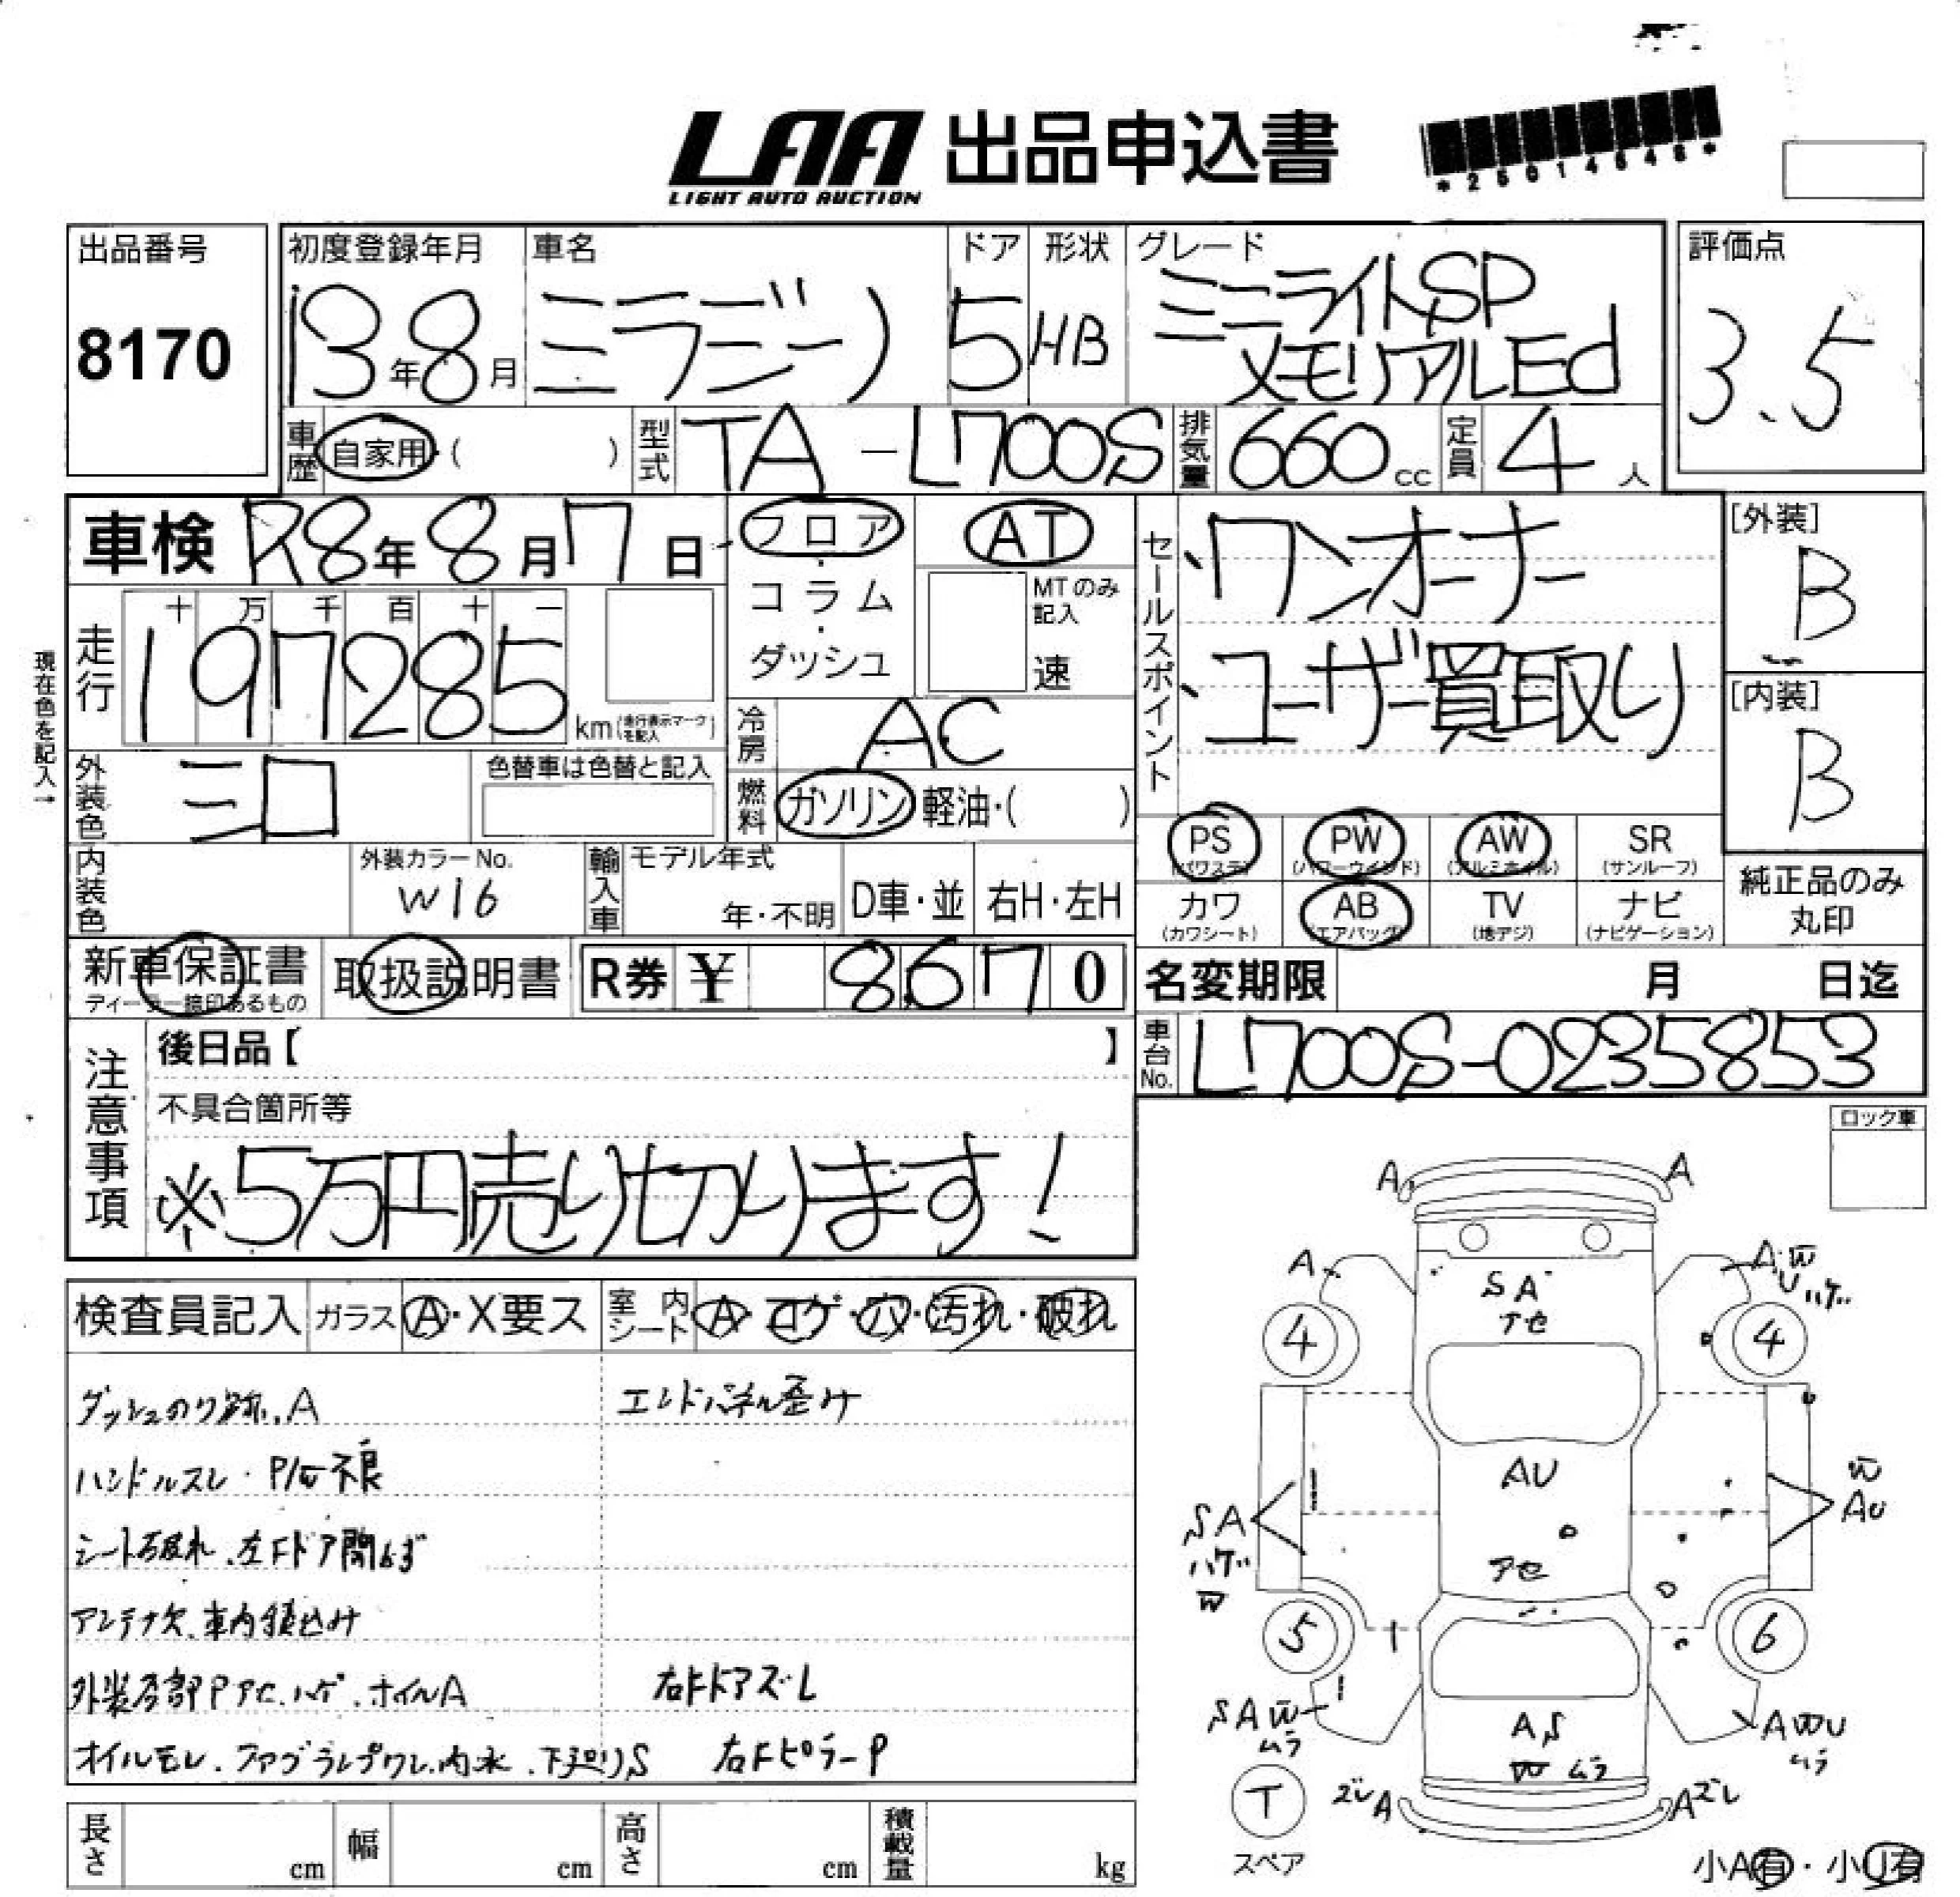 LAA 出品申込書
LIGHT AUTO AUCTION
出品番号
8170
初度登録年月
13年8月
車名
ミラジーノ
ドア
5
形状
HB
グレード
ミニライトSP
メモリアルEd
評価点
3.5
車歴
自家用・( )
型式
TA-L700S
排気量
660cc
定員
4人
車検 R8年8月7日
フロア・コラム・ダッシュ
AT
MTのみ記入
速
セールスポイント
、ワンオーナー
、ユーザー買取り
[外装]
B
[内装]
B
現在色を記入→
走行
十 万 千 百 十 一
197285
km(走行表示マークを記入)
冷房
AC
外装色
シロ
色替車は色替と記入
燃料
ガソリン 軽油・( )
PS (パワステ)
PW (パワーウインド)
AW (アルミホイル)
SR (サンルーフ)
カワ (カワシート)
AB (エアバッグ)
TV (地デジ)
ナビ (ナビゲーション)
純正品のみ丸印
内装色
外装カラーNo.
W16
輸入車
モデル年式
年・不明
D車・並
右H・左H
新車保証書
ディーラー捺印あるもの
取扱説明書
R券 ¥ 8,670
名変期限 月 日迄
車台No.
L700S-0235853
注意事項
後日品【 】
不具合箇所等
※5万円売り切ります!
ロック車
検査員記入
ガラス A・X要ス
室内シート A・コゲ・穴・汚れ・破れ
ダッシュのり跡、A
エンドパネル歪み
ハンドルスレ・P/W不良
シート破れ、左Fドア開しぶ
アンテナ欠、車内積込み
外装各部Pアセ、ハゲ、ホイルA
右Fドアズレ
オイルモレ、フォグランプワレ、内水、下廻りS
右FピラーP
A A
A
A W U ハゲ
SA アセ
4 4
AU
アセ
SA ハゲ W
W AU
5 6
SAW ムラ
AS W ムラ
AWU ムラ
T
スペア
ズレA
Aズレ
小A有・小U有
長さ cm
幅 cm
高さ cm
積載量 kg